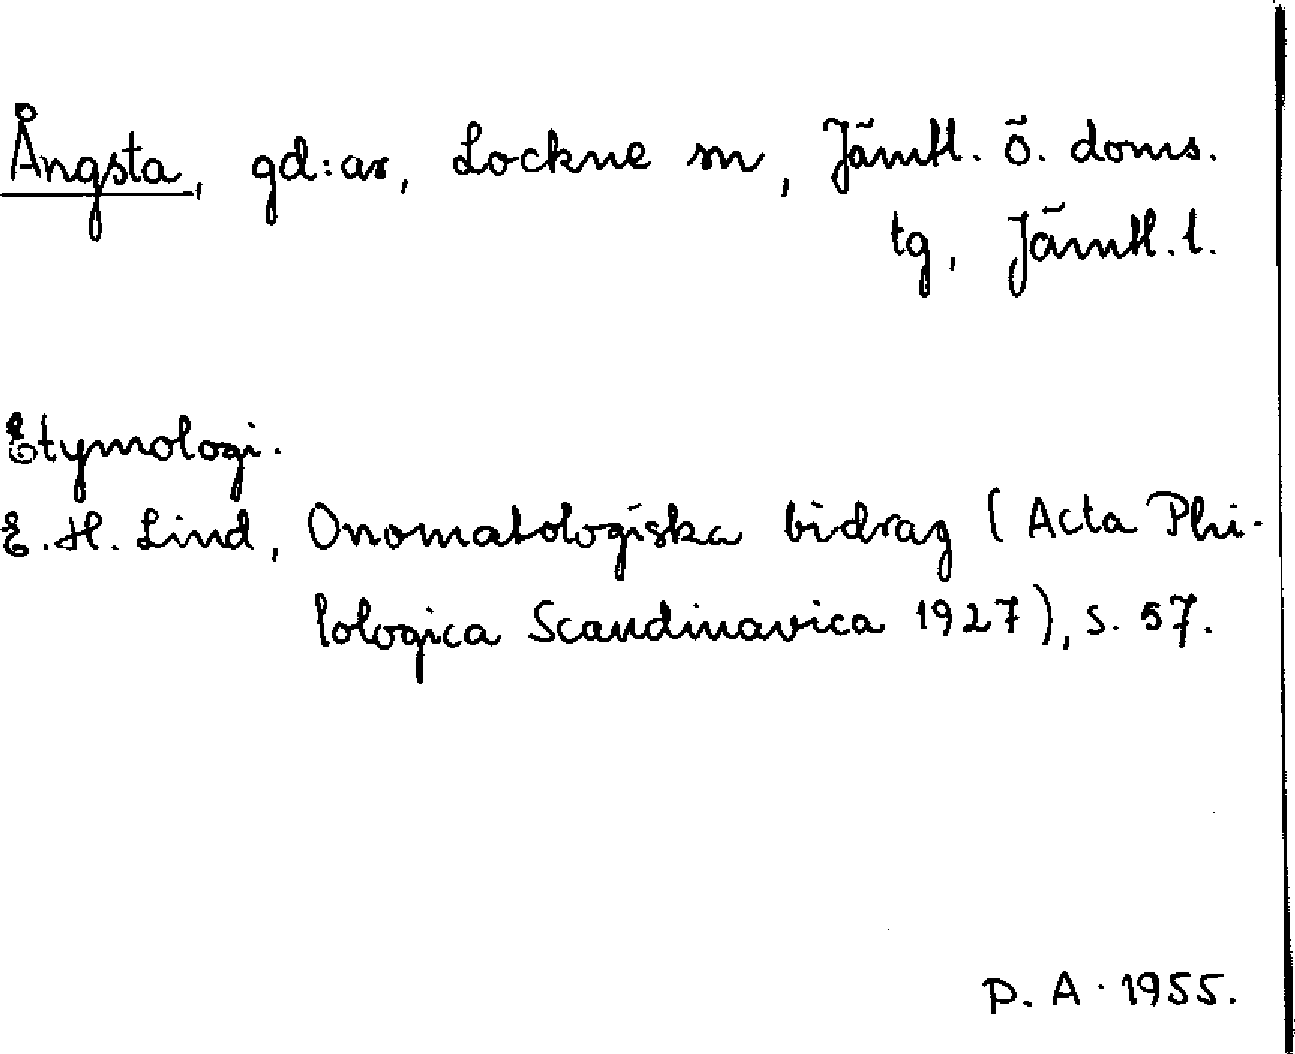 Ångsta, gd:ar, Lockne sn, Jämtl. ö. doms.
tg, Jämtl. l.
Etymologi.
E. H. Lind, Onomatologiska bidrag (Acta Phi-
lologica Scandinavica 1927), s. 57.
P. A. 1955.